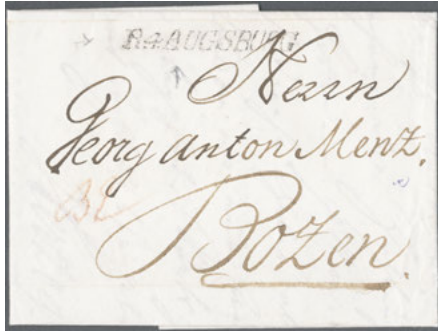 R.4.AUGSBURG
Herrn
Georg Anton Menz.
Bozen.